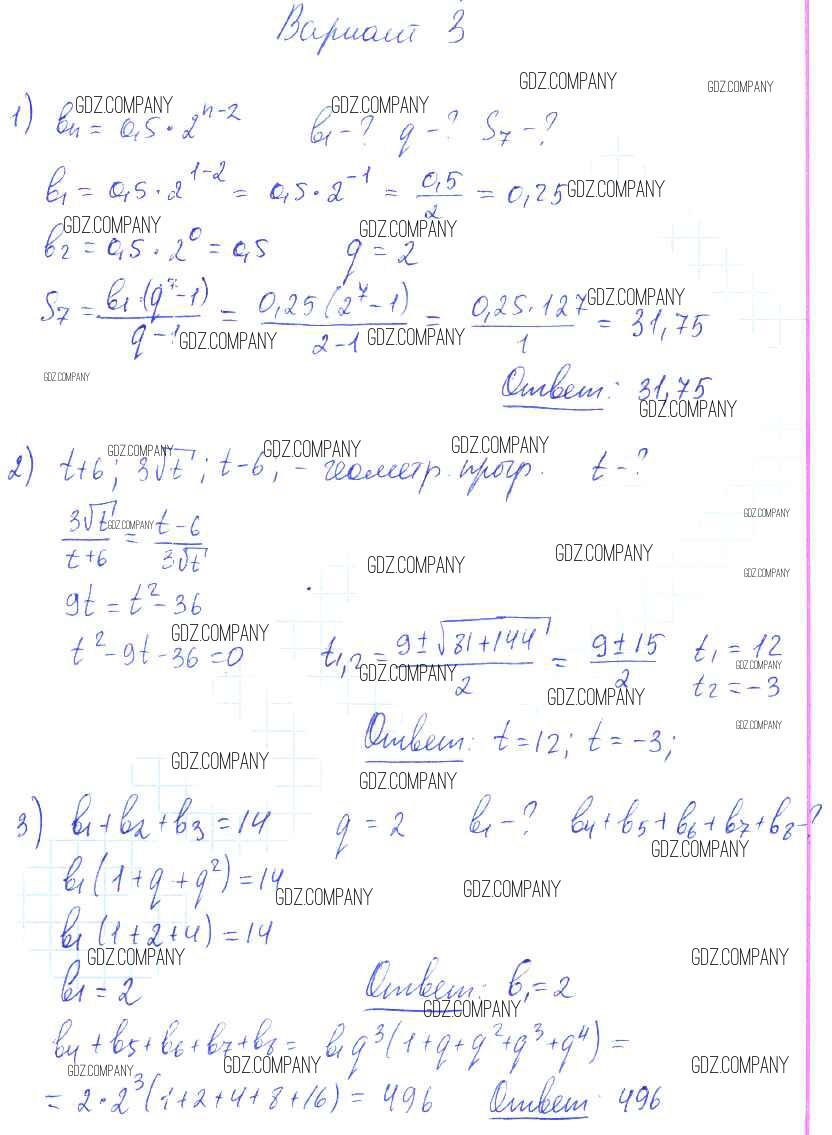 Вариант 3
GDZ.COMPANY GDZ.COMPANY
GDZ.COMPANY GDZ.COMPANY
1) bn = 0,5 · 2^(n-2) b1 - ? q - ? S7 - ?
b1 = 0,5 · 2^(1-2) = 0,5 · 2^(-1) = 0,5/2 = 0,25 GDZ.COMPANY
GDZ.COMPANY GDZ.COMPANY
b2 = 0,5 · 2^0 = 0,5 q = 2
GDZ.COMPANY
S7 = b1 · (q^7 - 1)/(q - 1) = 0,25 (2^7 - 1)/(2 - 1) = 0,25 · 127/1 = 31,75
GDZ.COMPANY GDZ.COMPANY
GDZ.COMPANY
Ответ: 31,75
GDZ.COMPANY
GDZ.COMPANY GDZ.COMPANY GDZ.COMPANY
2) t+6; 3√t; t-6; - геометр. прогр. t - ?
GDZ.COMPANY
3√t/(t+6) = (t-6)/(3√t)
GDZ.COMPANY
GDZ.COMPANY GDZ.COMPANY GDZ.COMPANY
9t = t² - 36
GDZ.COMPANY
t² - 9t - 36 = 0 t1,2 = (9 ± √(81+144))/2 = (9 ± 15)/2 t1 = 12
GDZ.COMPANY GDZ.COMPANY
t2 = -3
GDZ.COMPANY
GDZ.COMPANY
Ответ: t = 12; t = -3;
GDZ.COMPANY
GDZ.COMPANY
3) b1 + b2 + b3 = 14 q = 2 b1 - ? b4 + b5 + b6 + b7 + b8 - ?
GDZ.COMPANY
b1 (1 + q + q²) = 14
GDZ.COMPANY GDZ.COMPANY
b1 (1 + 2 + 4) = 14
GDZ.COMPANY GDZ.COMPANY
b1 = 2 Ответ: b1 = 2
GDZ.COMPANY
b4 + b5 + b6 + b7 + b8 = b1 q³ (1 + q + q² + q³ + q⁴) =
GDZ.COMPANY GDZ.COMPANY GDZ.COMPANY
= 2 · 2³ (1 + 2 + 4 + 8 + 16) = 496 Ответ: 496